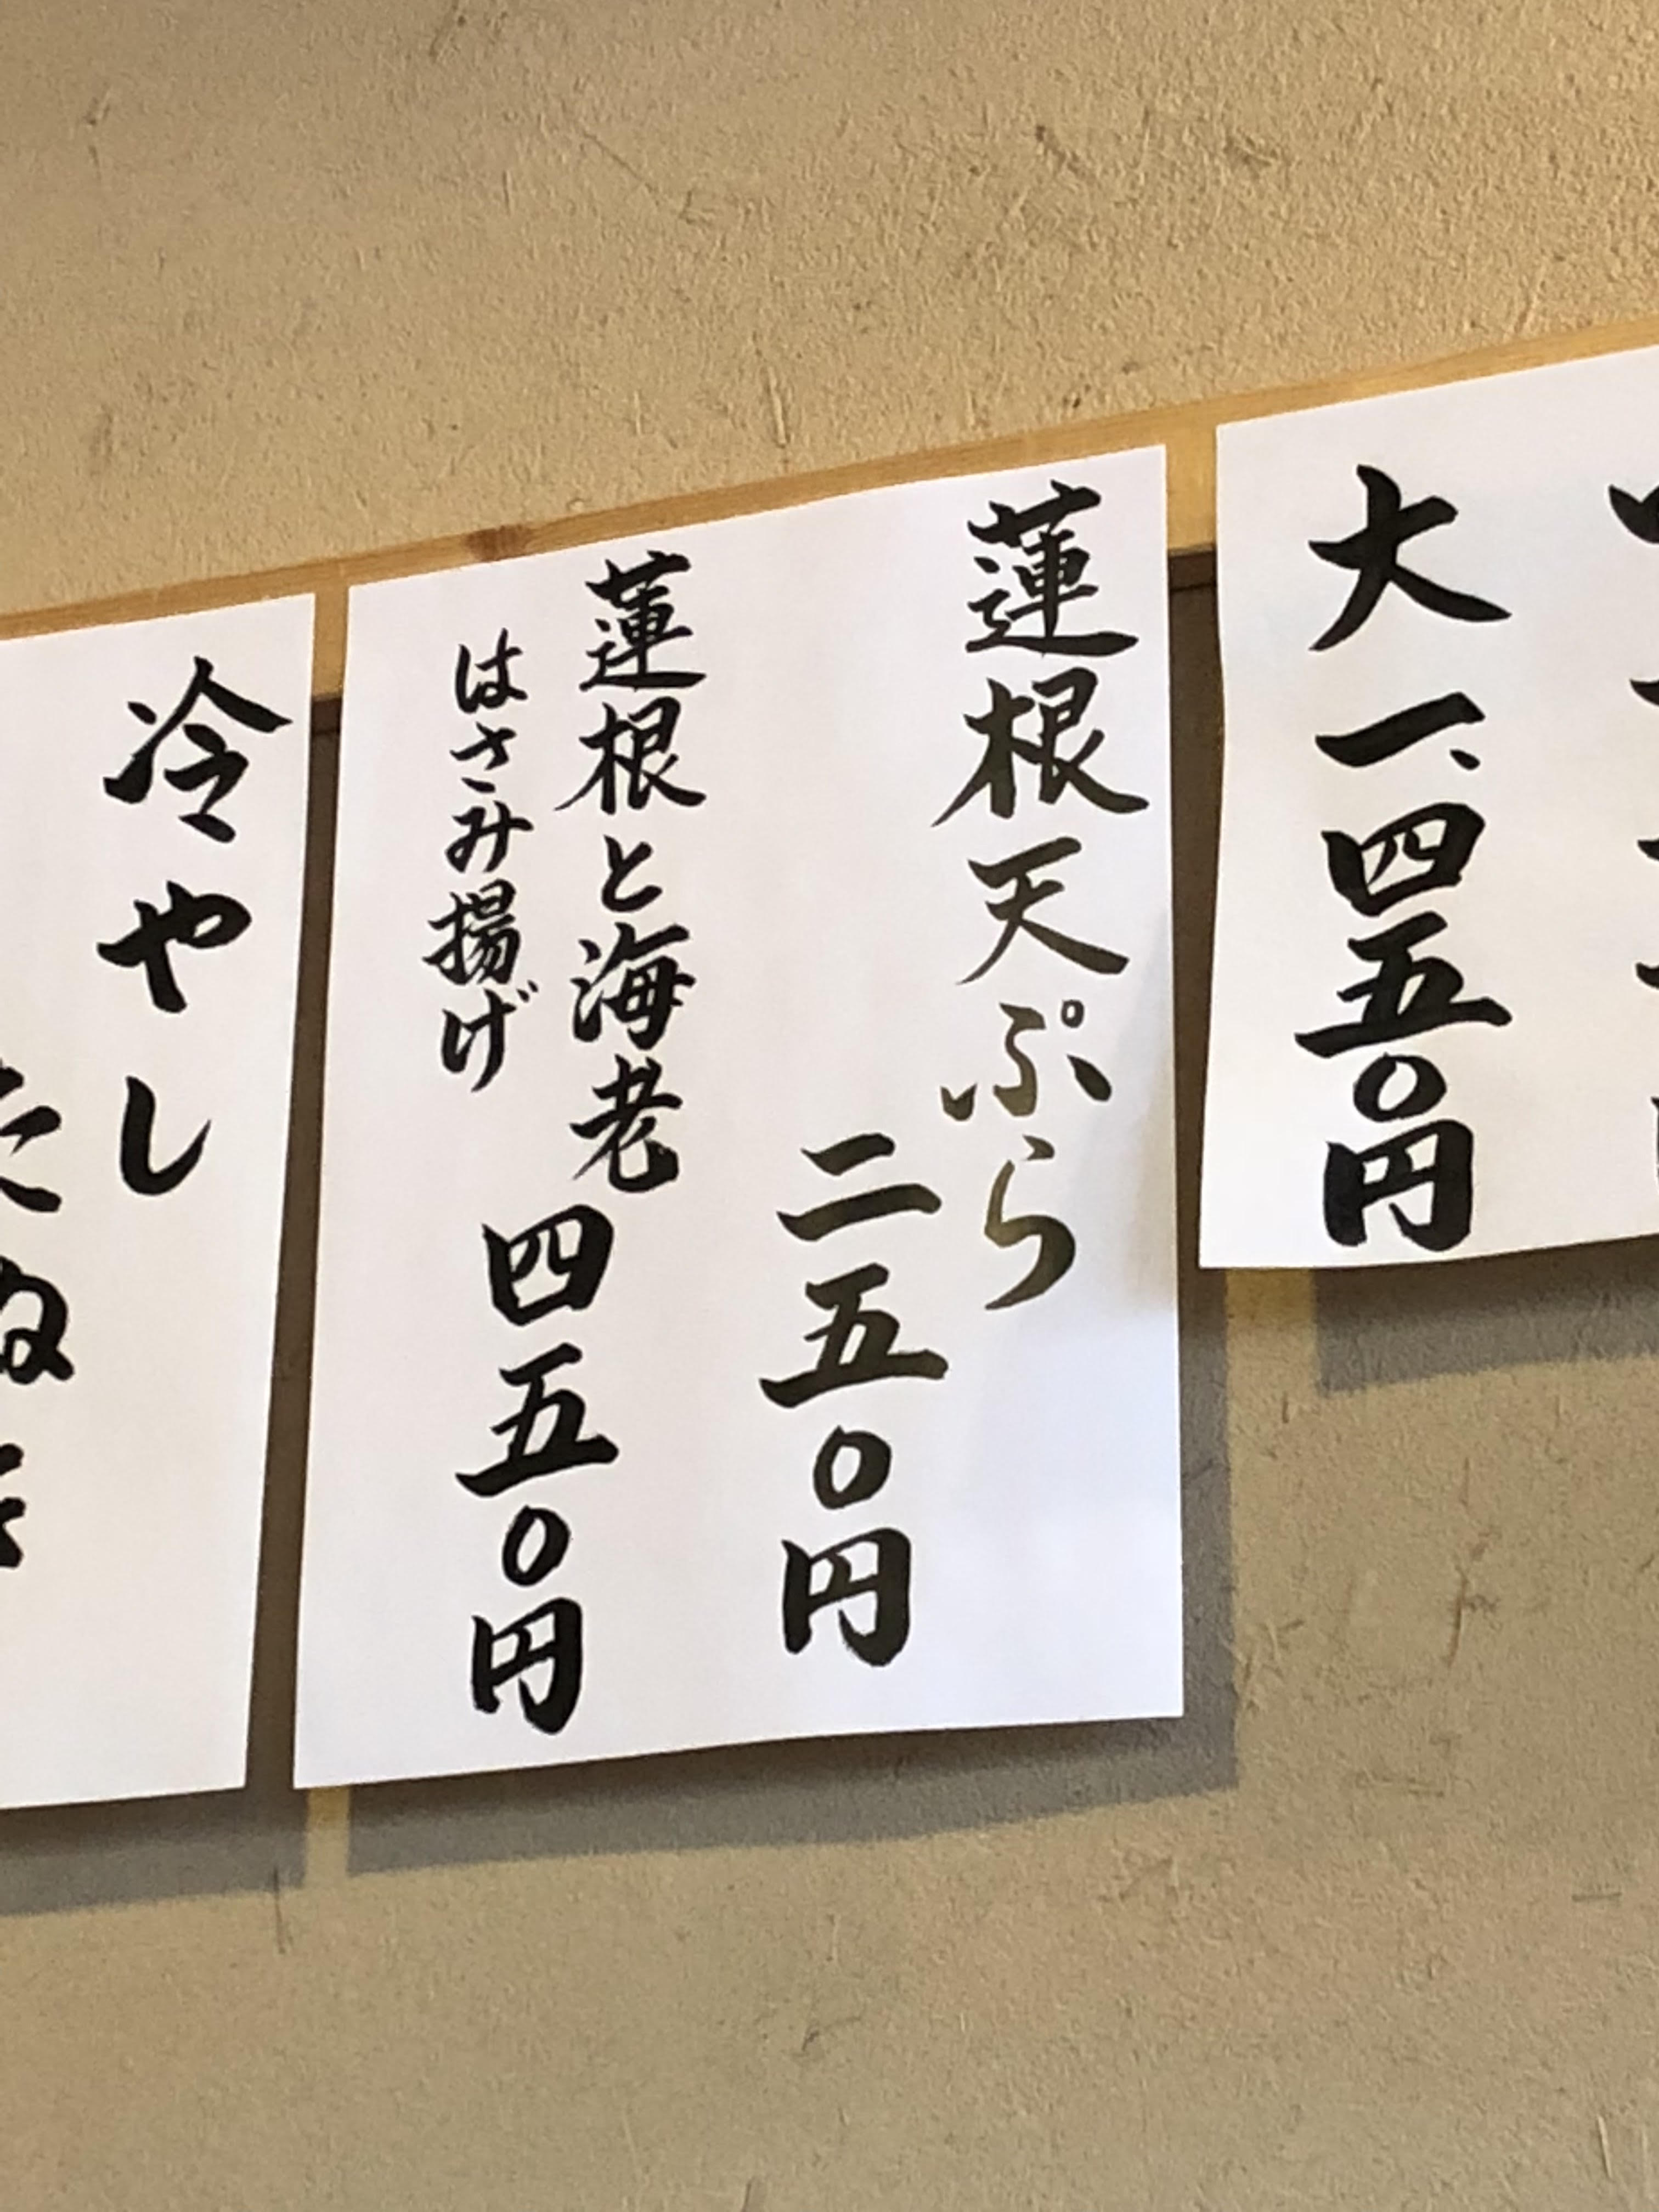 大一、四五〇円
蓮根天ぷら
二五〇円
蓮根と海老
はさみ揚げ
四五〇円
冷やし
たぬき